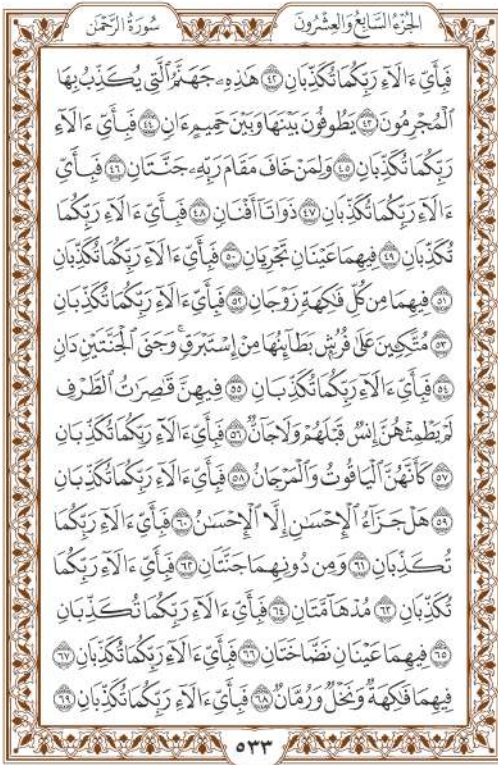 سُورَةُ الرَّحْمَٰن
الجُزْءُ السَّابِعُ وَالعِشْرُونَ
فَبِأَيِّ ءَالَآءِ رَبِّكُمَا تُكَذِّبَانِ ٤٢ هَٰذِهِۦ جَهَنَّمُ ٱلَّتِي يُكَذِّبُ بِهَا
ٱلْمُجْرِمُونَ ٤٣ يَطُوفُونَ بَيْنَهَا وَبَيْنَ حَمِيمٍ ءَانٍ ٤٤ فَبِأَيِّ ءَالَآءِ
رَبِّكُمَا تُكَذِّبَانِ ٤٥ وَلِمَنْ خَافَ مَقَامَ رَبِّهِۦ جَنَّتَانِ ٤٦ فَبِأَيِّ
ءَالَآءِ رَبِّكُمَا تُكَذِّبَانِ ٤٧ ذَوَاتَآ أَفْنَانٍ ٤٨ فَبِأَيِّ ءَالَآءِ رَبِّكُمَا
تُكَذِّبَانِ ٤٩ فِيهِمَا عَيْنَانِ تَجْرِيَانِ ٥٠ فَبِأَيِّ ءَالَآءِ رَبِّكُمَا تُكَذِّبَانِ
٥١ فِيهِمَا مِن كُلِّ فَٰكِهَةٍ زَوْجَانِ ٥٢ فَبِأَيِّ ءَالَآءِ رَبِّكُمَا تُكَذِّبَانِ
٥٣ مُتَّكِـِٔينَ عَلَىٰ فُرُشٍۭ بَطَآئِنُهَا مِنْ إِسْتَبْرَقٍ ۚ وَجَنَى ٱلْجَنَّتَيْنِ دَانٍ
٥٤ فَبِأَيِّ ءَالَآءِ رَبِّكُمَا تُكَذِّبَانِ ٥٥ فِيهِنَّ قَٰصِرَٰتُ ٱلطَّرْفِ
لَمْ يَطْمِثْهُنَّ إِنسٌ قَبْلَهُمْ وَلَا جَآنٌّ ٥٦ فَبِأَيِّ ءَالَآءِ رَبِّكُمَا تُكَذِّبَانِ
٥٧ كَأَنَّهُنَّ ٱلْيَاقُوتُ وَٱلْمَرْجَانُ ٥٨ فَبِأَيِّ ءَالَآءِ رَبِّكُمَا تُكَذِّبَانِ
٥٩ هَلْ جَزَآءُ ٱلْإِحْسَٰنِ إِلَّا ٱلْإِحْسَٰنُ ٦٠ فَبِأَيِّ ءَالَآءِ رَبِّكُمَا
تُكَذِّبَانِ ٦١ وَمِن دُونِهِمَا جَنَّتَانِ ٦٢ فَبِأَيِّ ءَالَآءِ رَبِّكُمَا
تُكَذِّبَانِ ٦٣ مُدْهَآمَّتَانِ ٦٤ فَبِأَيِّ ءَالَآءِ رَبِّكُمَا تُكَذِّبَانِ
٦٥ فِيهِمَا عَيْنَانِ نَضَّاخَتَانِ ٦٦ فَبِأَيِّ ءَالَآءِ رَبِّكُمَا تُكَذِّبَانِ ٦٧
فِيهِمَا فَٰكِهَةٌ وَنَخْلٌ وَرُمَّانٌ ٦٨ فَبِأَيِّ ءَالَآءِ رَبِّكُمَا تُكَذِّبَانِ ٦٩
٥٣٣